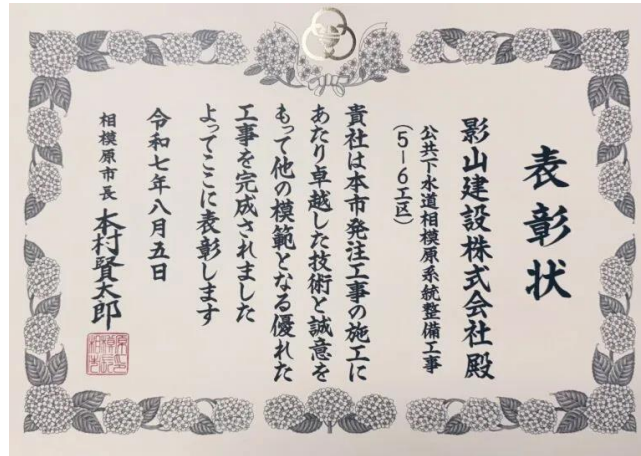 表彰状
影山建設株式会社殿
公共下水道相模原系統整備工事
(5-6工区)
貴社は本市発注工事の施工に
あたり卓越した技術と誠意を
もって他の模範となる優れた
工事を完成されました
よってここに表彰します
令和七年八月五日
相模原市長 本村賢太郎